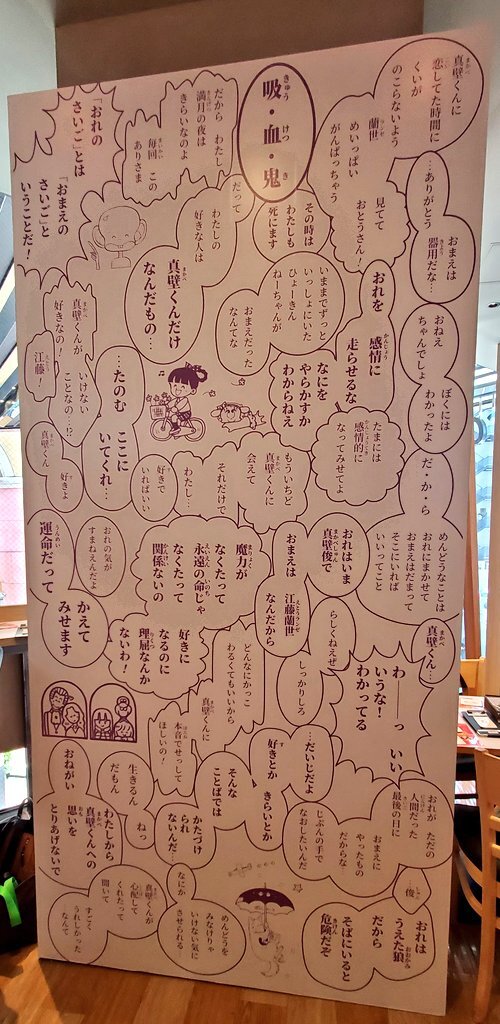 真壁くんに
恋してた時間に
くいが
のこらないよう
蘭世
めいっぱい
がんばっちゃう
吸・血・鬼
だから わたし
満月の夜は
きらいなのよ
毎回 この
ありさま
「おれの
さいご」とは
「おまえの
さいご」と
いうことだ！
…ありがとう
おまえは
器用だな…
見てて
おとうさん！
その時は
わたしも
死にます
だって
わたしの
好きな人は
真壁くんだけ
なんだもの…
おねえ
ちゃんでしょ
ぼくには
わかったよ
おれを
感情に
走らせるな
なにを
やらかすか
わからねえ
いままでずっと
いっしょにいた
ひょーきん
ねーちゃんが
おまえだった
なんてな
真壁くんが
好きなの！
いけない
ことなの…!?
江藤！
真壁くん
好きよ
…たのむ
ここに
いてくれ…
だ・か・ら
めんどうなことは
おれにまかせて
おまえはだまって
そこにいれば
いいってこと
たまには
感情的に
なってみせてよ
もういちど
真壁くんに
会えて
それだけで
わたし…
好きで
いればいい
おれはいま
真壁俊で
おまえは
江藤蘭世
なんだから
魔力が
なくたって
永遠の命じゃ
なくたって
関係ないの
おれの気が
すまねえんだよ
運命だって
かえて
みせます
真壁くん…
らしくねえぜ
わーーっ
いうな！
わかってる
いい
しっかりしろ
どんなにかっこ
わるくてもいいから
真壁くんに
本音でせっして
ほしいの！
好きに
なるのに
理屈なんか
ないわ！
おれが ただの
人間だった
最後の日に
おまえに
やったもの
だからな
じぶんの手で
なおしたいんだ
…だいじだよ
好きとか
きらいとか
そんな
ことばでは
かたづけ
られ
ないんだ…
生きるん
だもん
ねっ
おねがい
わたしから
真壁くんへの
思いを
とりあげないで
…俊
おれは
うえた狼
だから
そばにいると
危険だぞ
めんどうを
みなけりゃ
いけない気に
させられる…
なにか
真壁くんが
心配して
くれたって
聞いて
すごく
うれしかった
なんて